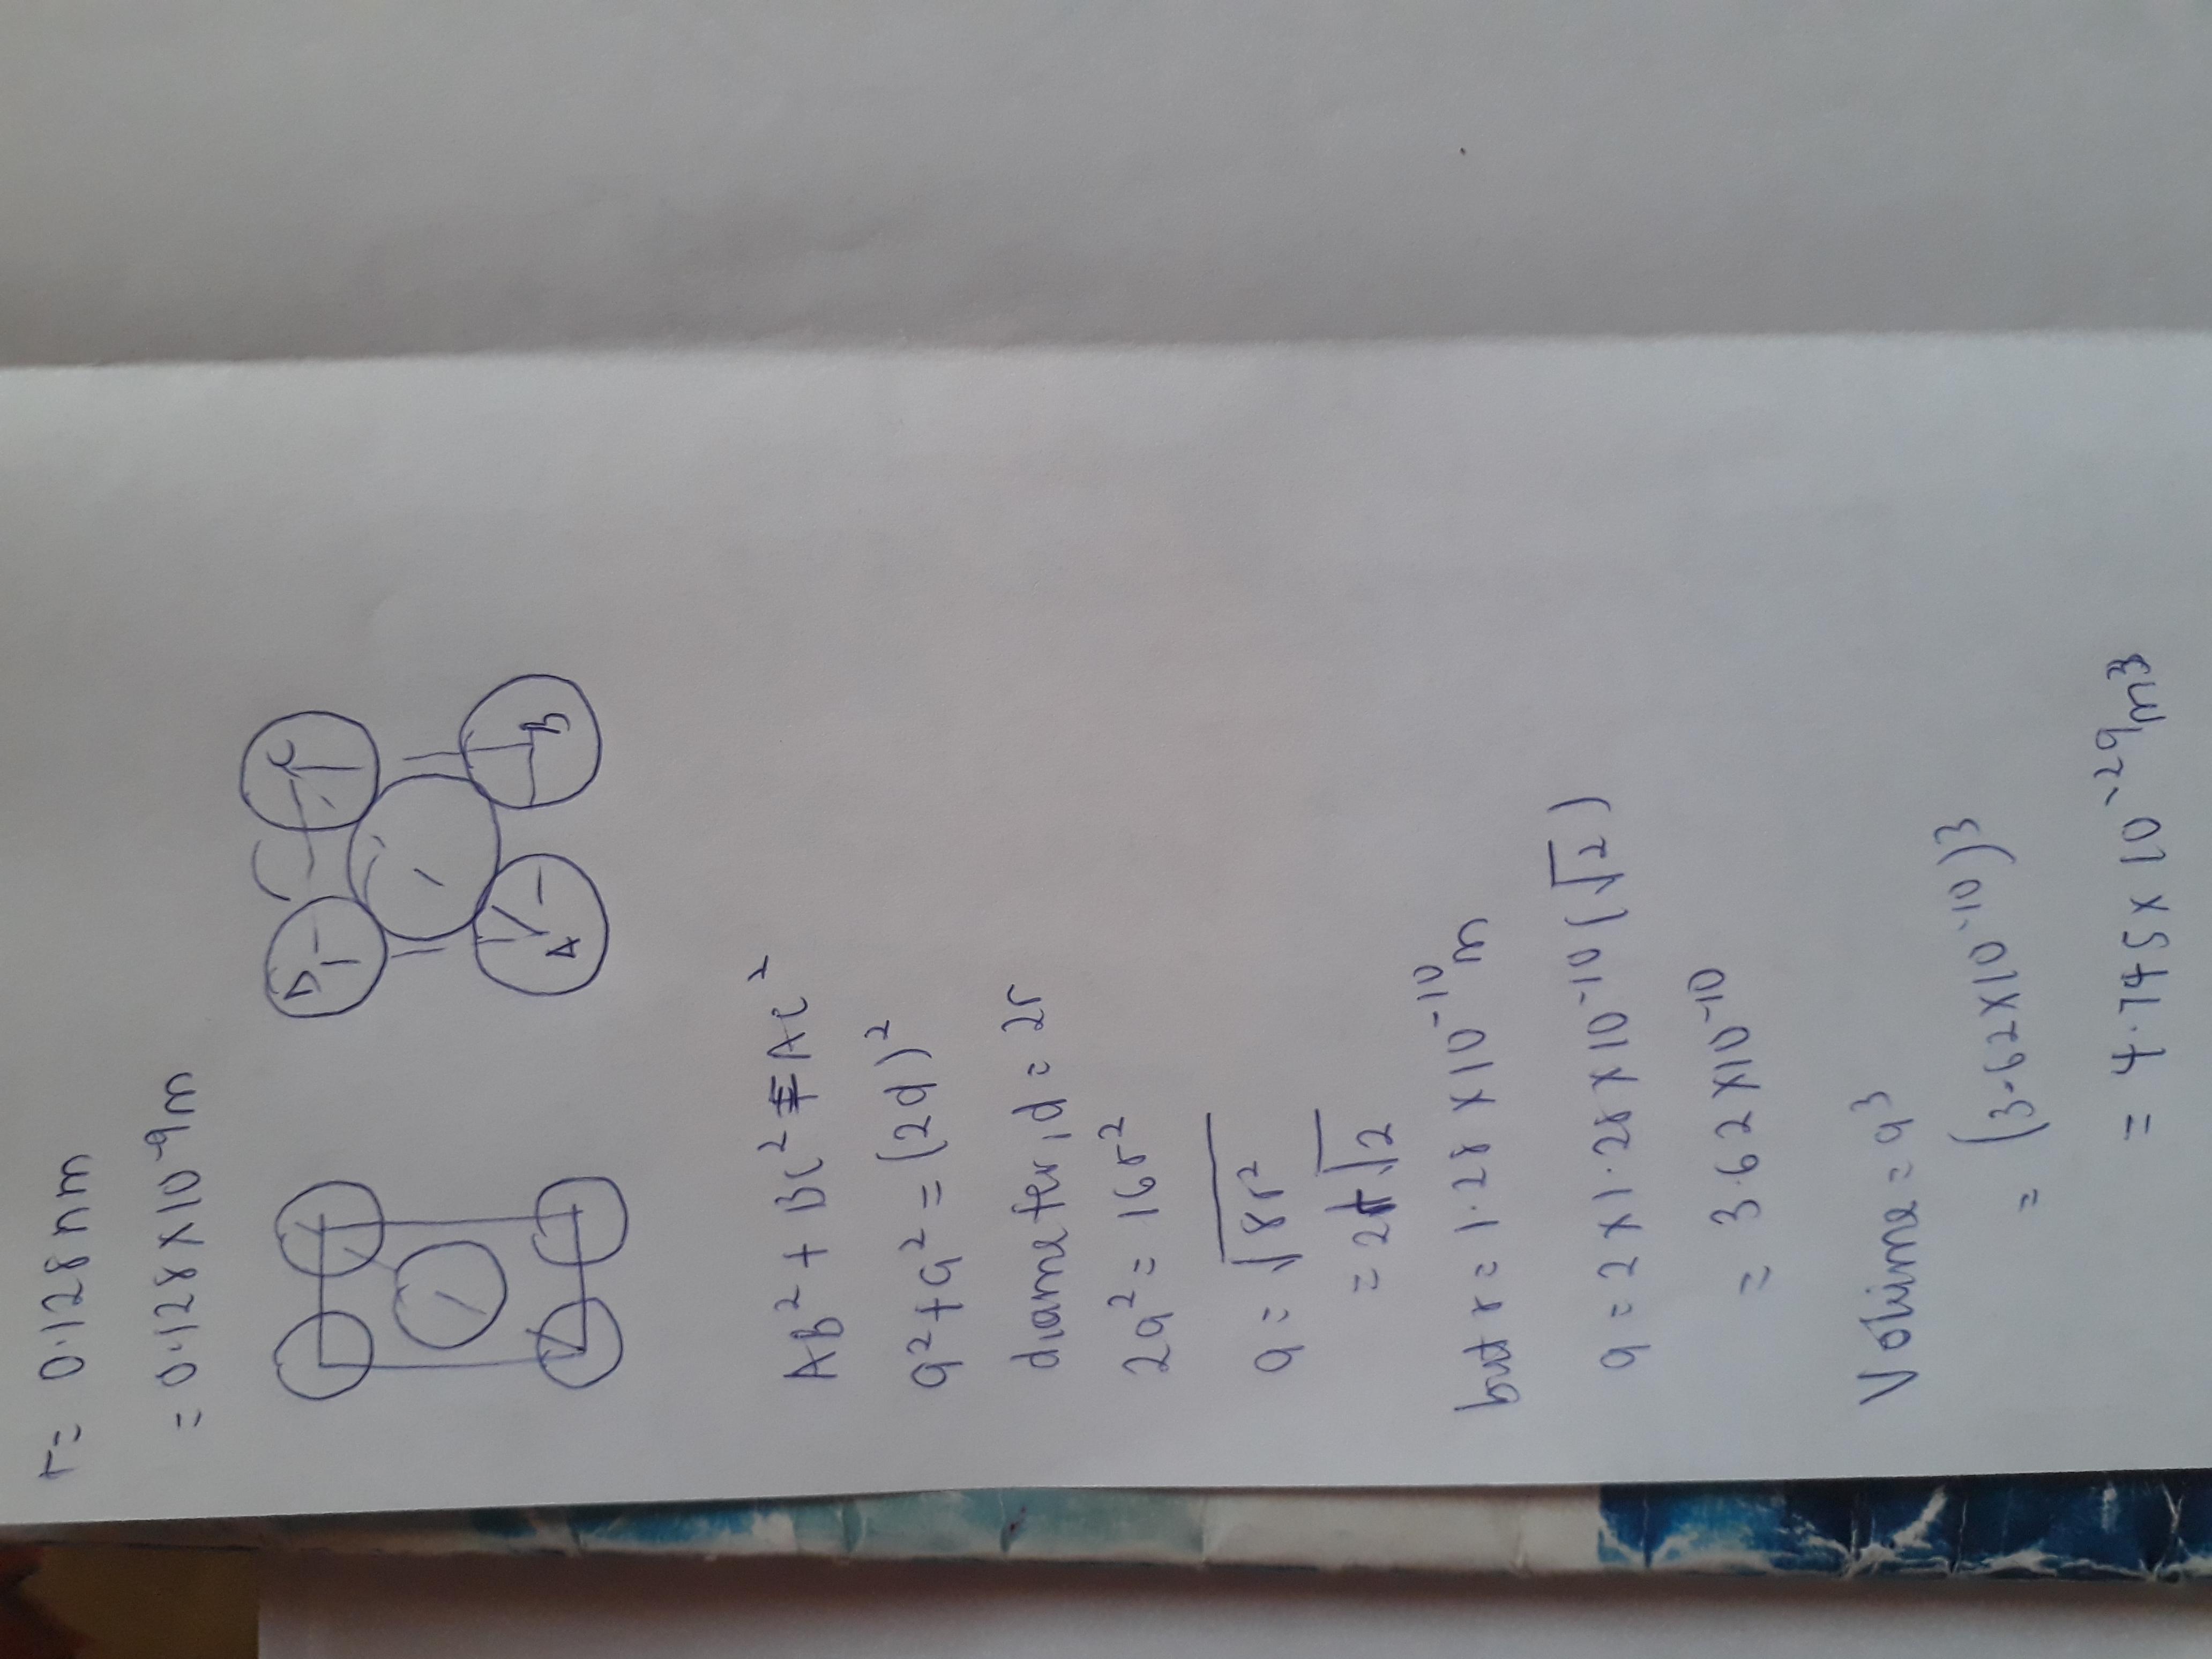 r= 0.128nm
= 0.128 x 10⁻⁹m
D C
A B
AB² + BC² = AC²
a² + a² = (2d)²
diameter, d = 2r
2a² = 16r²
a = √8r²
= 2r√2
but r = 1.28 x 10⁻¹⁰m
a = 2 x 1.28 x 10⁻¹⁰(√2)
= 3.62 x 10⁻¹⁰
Volume = a³
= (3.62x10⁻¹⁰)³
= 4.745 x 10⁻²⁹m³